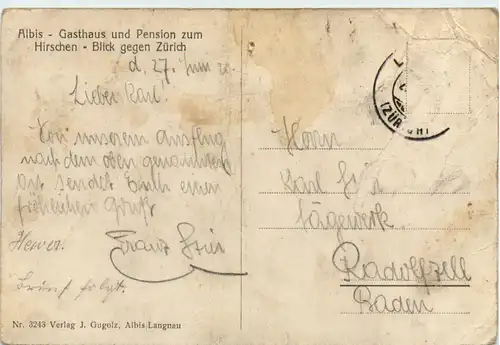 Albis - Gasthaus und Pension zum
Hirschen - Blick gegen Zürich
d. 27. Juni
Lieber Karl!
Von unserem Ausflug
nach dem oben genannten
Ort sendet Euch einen
fröhlichen Gruß
Franz
Brief folgt.
Nr. 3243 Verlag J. Gugolz, Albis-Langnau
(ZÜRICH)
Herrn
Karl
Sägewerk
Radolfzell
Baden